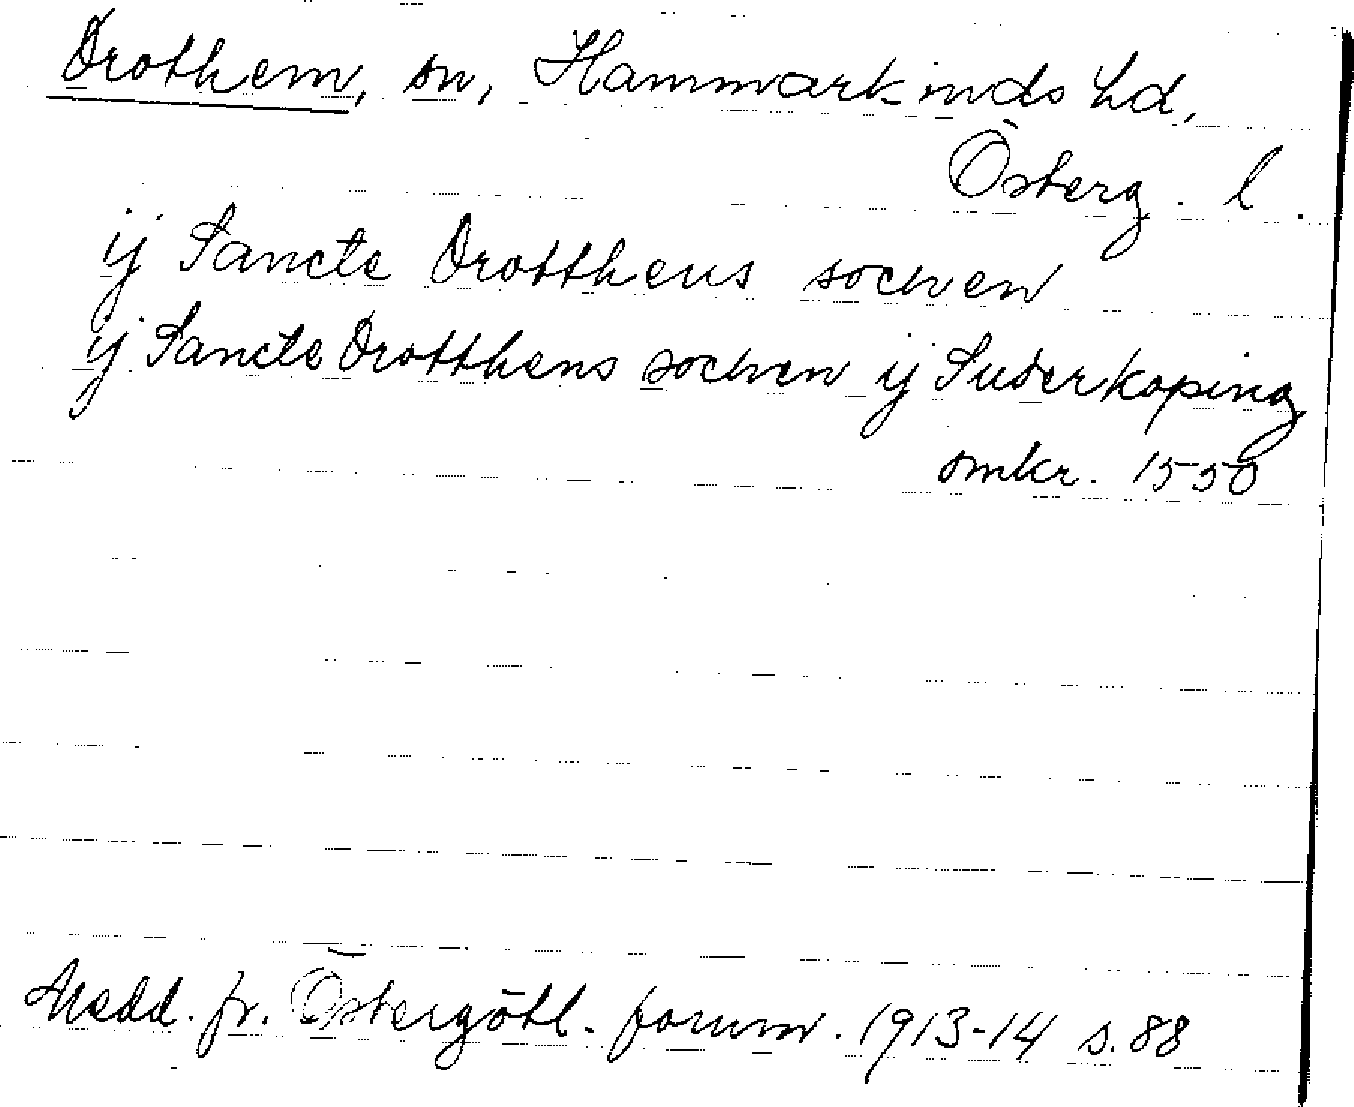 Drothem, sn, Hammarkinds hd,
Österg. l.
ij Sancte Drotthens sochen
ij Sancte Drotthens sochen ij Suderkoping
smkr. 1550
Medd. fr. Östergötl. fornm. 1913-14 s. 88